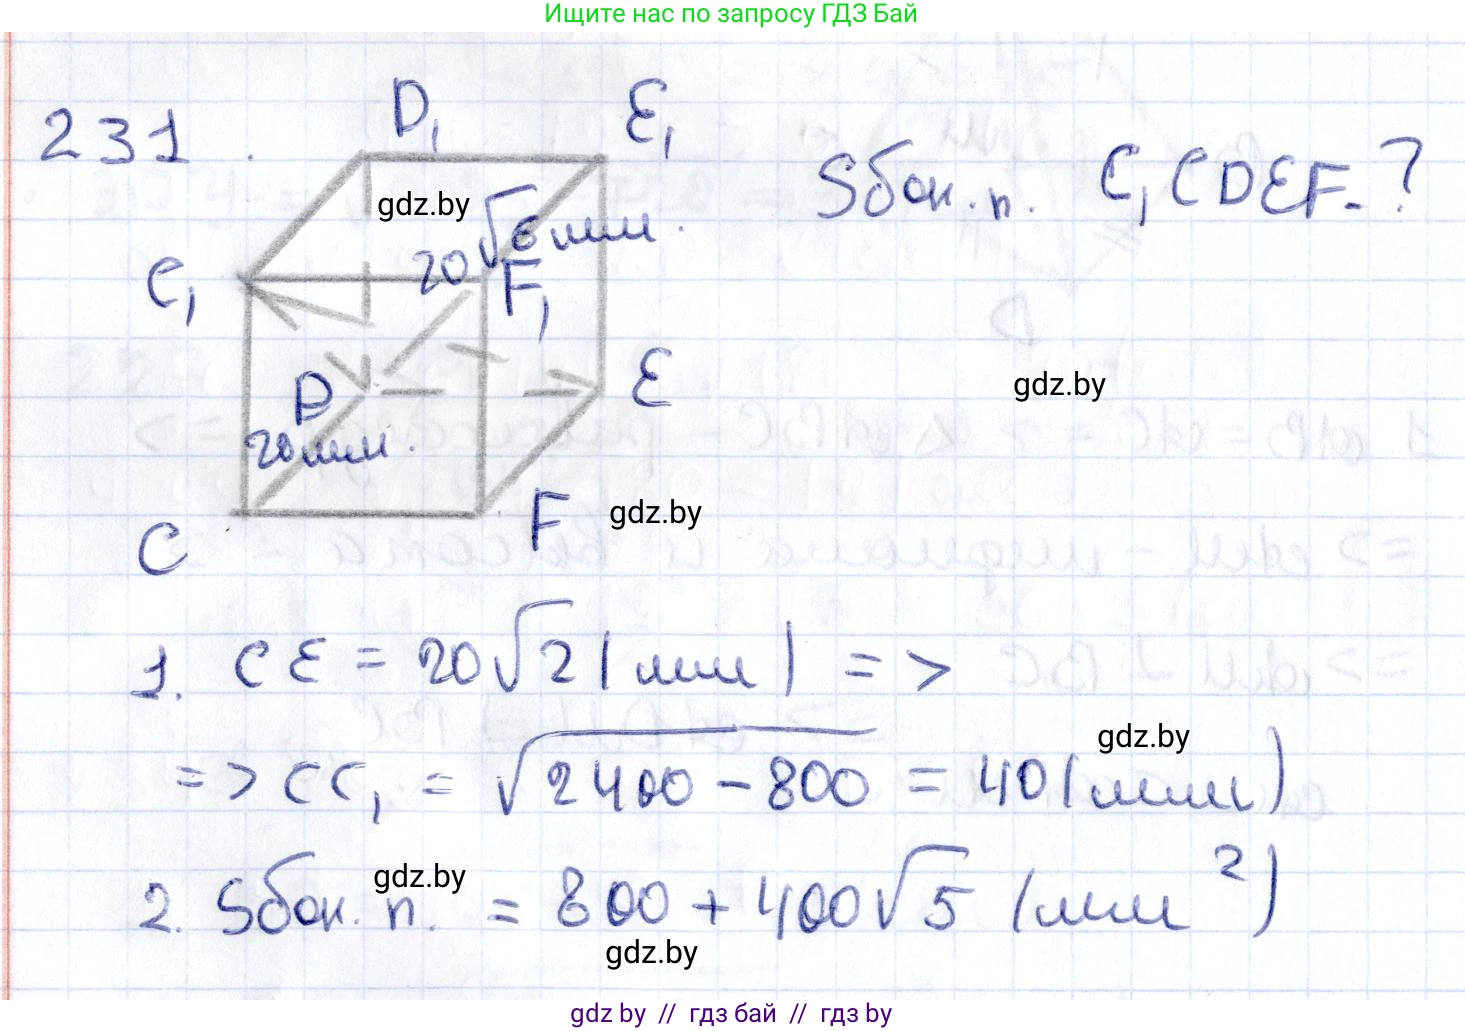 Ищите нас по запросу ГДЗ Бай
231.
D₁
E₁
Sбок. п. C₁CDEF-?
gdz.by
20√6 мм.
C₁
F₁
D
E
gdz.by
20 мм.
C
F
gdz.by
1. CE = 20√2 (мм) =>
=> CC₁ = √2400 - 800 = 40 (мм)
gdz.by
2. Sбок. п. = 800 + 400√5 (мм²)
gdz.by
gdz.by
gdz by // гдз бай // гдз by